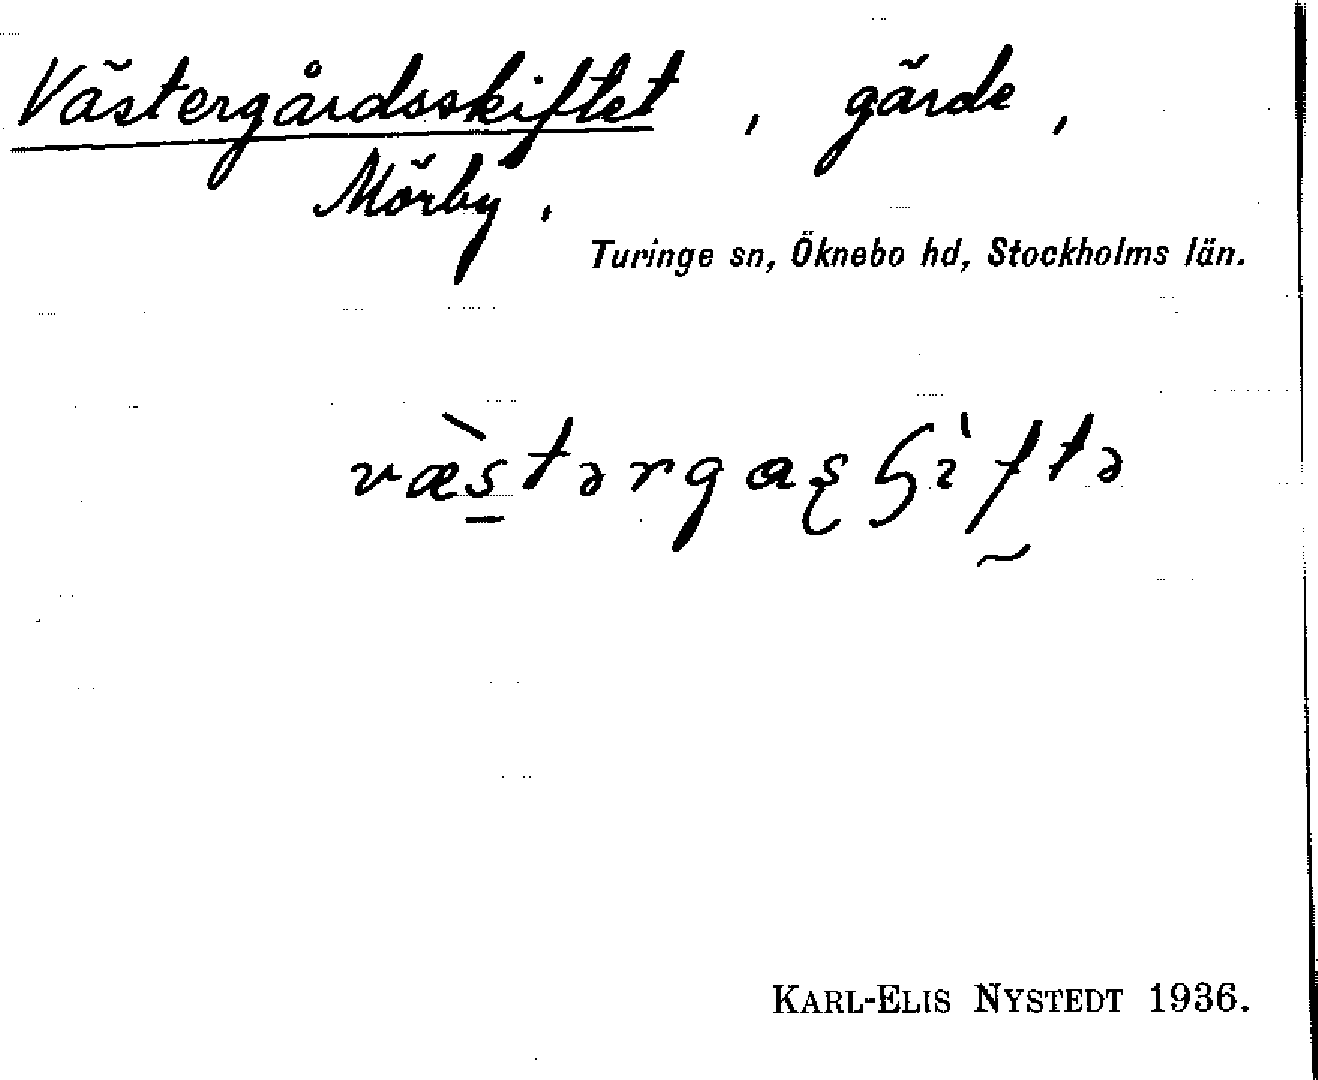 Västergårdsskiftet, gärde,
Mörby.
Turinge sn, Öknebo hd, Stockholms län.
KARL-ELIS NYSTEDT 1936.